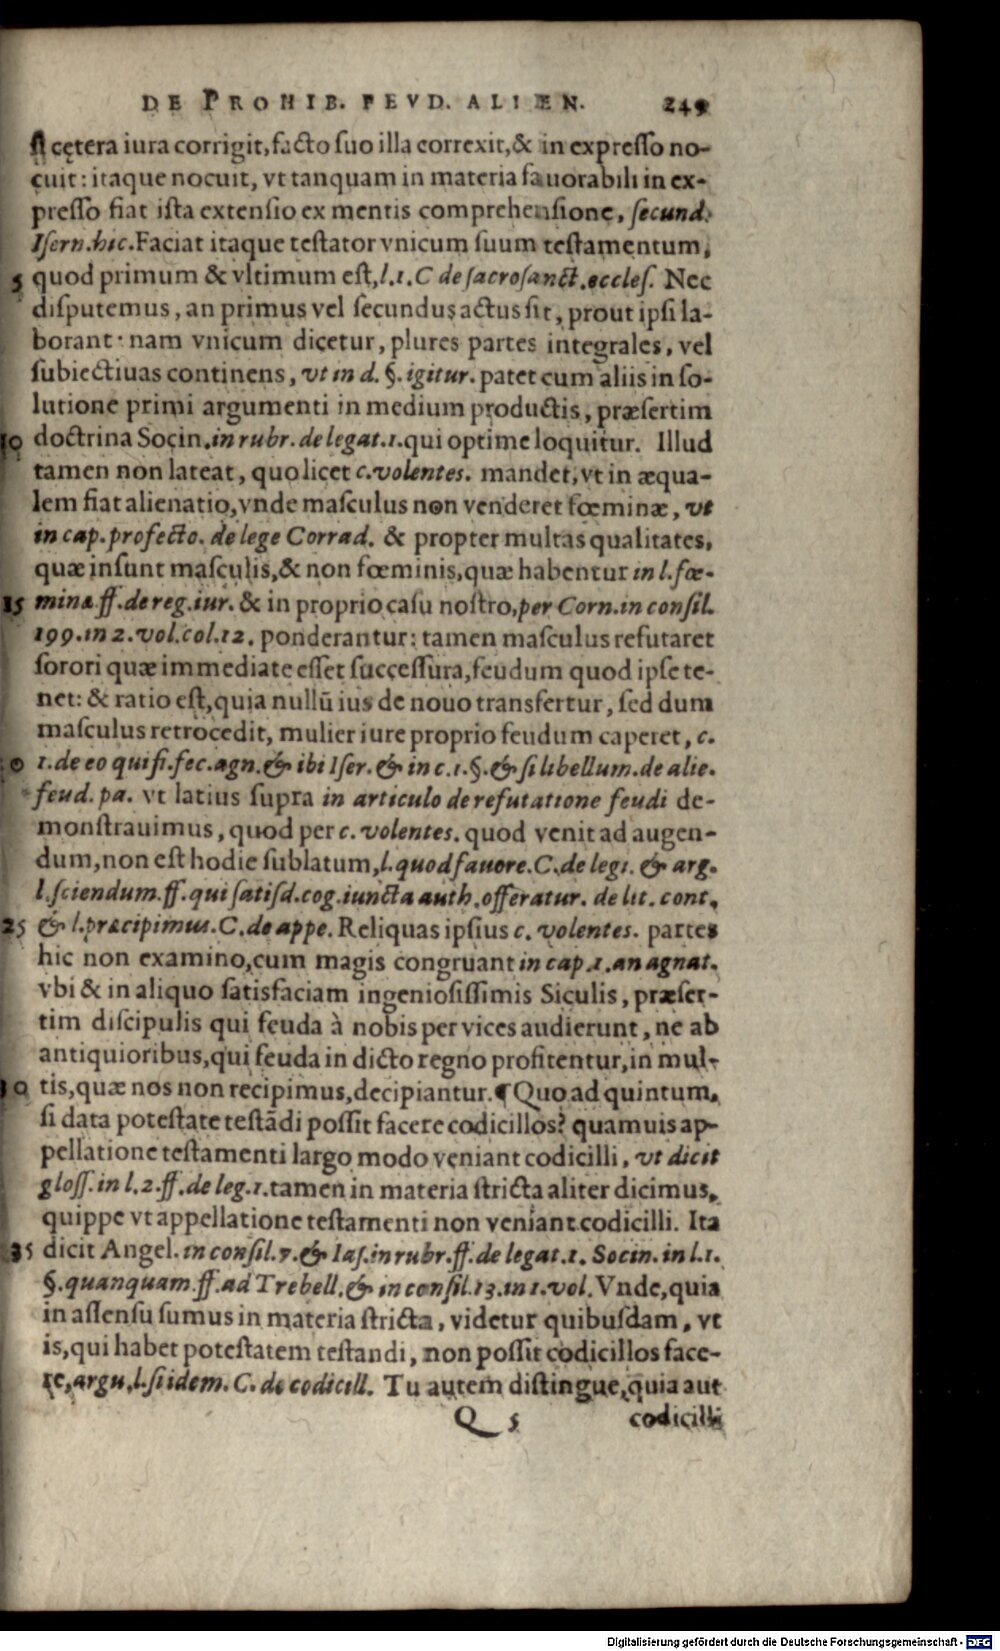 DE PROHIB. FEVD. ALIEN. 249
ſi cętera iura corrigit, facto ſuo illa correxit, & in expreſſo no-
cuit: itaque nocuit, vt tanquam in materia fauorabili in ex-
preſſo fiat iſta extenſio ex mentis comprehenſione, ſecund.
Iſern. hic. Faciat itaque teſtator vnicum ſuum teſtamentum,
5 quod primum & vltimum eſt, l. 1. C de ſacroſanct. eccleſ. Nec
diſputemus, an primus vel ſecundus actus ſit, prout ipſi la-
borant: nam vnicum dicetur, plures partes integrales, vel
ſubiectiuas continens, vt in d. §. igitur. patet cum aliis in ſo-
lutione primi argumenti in medium productis, præſertim
10 doctrina Socin. in rubr. de legat. 1. qui optime loquitur. Illud
tamen non lateat, quo licet c. volentes. mandet, vt in æqua-
lem fiat alienatio, vnde maſculus non venderet fœminæ, vt
in cap. profecto. de lege Corrad. & propter multas qualitates,
quæ inſunt maſculis, & non fœminis, quæ habentur in l. fœ-
15 minæ ff. de reg. iur. & in proprio caſu noſtro, per Corn. in conſil.
199. in 2. vol. col. 12. ponderantur: tamen maſculus refutaret
ſorori quæ immediate eſſet ſucceſſura, feudum quod ipſe te-
net: & ratio eſt, quia nullū ius de nouo transfertur, ſed dum
maſculus retrocedit, mulier iure proprio feudum caperet, c.
0 1. de eo qui ſi. fec. agn. & ibi Iſer. & in c. 1. §. & ſi libellum. de alie.
feud. pa. vt latius ſupra in articulo de refutatione feudi de-
monſtrauimus, quod per c. volentes. quod venit ad augen-
dum, non eſt hodie ſublatum, l. quod fauore. C. de legi. & arg.
l. ſciendum. ff. qui ſatiſd. cog. iuncta auth. offeratur. de lit. cont.
25 & l. præcipimus. C. de appe. Reliquas ipſius c. volentes. partes
hic non examino, cum magis congruant in cap. 1. an agnat.
vbi & in aliquo ſatisfaciam ingenioſiſſimis Siculis, præſer-
tim diſcipulis qui feuda à nobis per vices audierunt, ne ab
antiquioribus, qui feuda in dicto regno profitentur, in mul-
30 tis, quæ nos non recipimus, decipiantur. ¶ Quo ad quintum,
ſi data poteſtate teſtādi poſſit facere codicillos? quamuis ap-
pellatione teſtamenti largo modo veniant codicilli, vt dicit
gloſſ. in l. 2. ff. de leg. 1. tamen in materia ſtricta aliter dicimus,
quippe vt appellatione teſtamenti non veniant codicilli. Ita
35 dicit Angel. in conſil. 7. & Iaſ. in rubr. ff. de legat. 1. Socin. in l. 1.
§. quanquam. ff. ad Trebell. & in conſil. 13. in 1. vol. Vnde, quia
in aſſenſu ſumus in materia ſtricta, videtur quibuſdam, vt
is, qui habet poteſtatem teſtandi, non poſſit codicillos face-
re, argu. l. ſi idem. C. de codicill. Tu autem diſtingue, quia aut
Q 5 codicilli
Digitalisierung gefördert durch die Deutsche Forschungsgemeinschaft - DFG